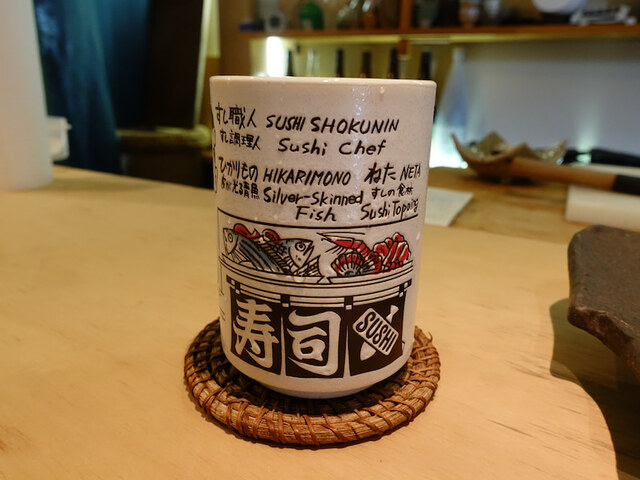 すし職人 SUSHI SHOKUNIN
すし調理人 Sushi Chef
ひかりもの HIKARIMONO ねた NETA
皮が光る青魚 Silver-Skinned すしの食材
Fish Sushi Topping
寿司 SUSHI